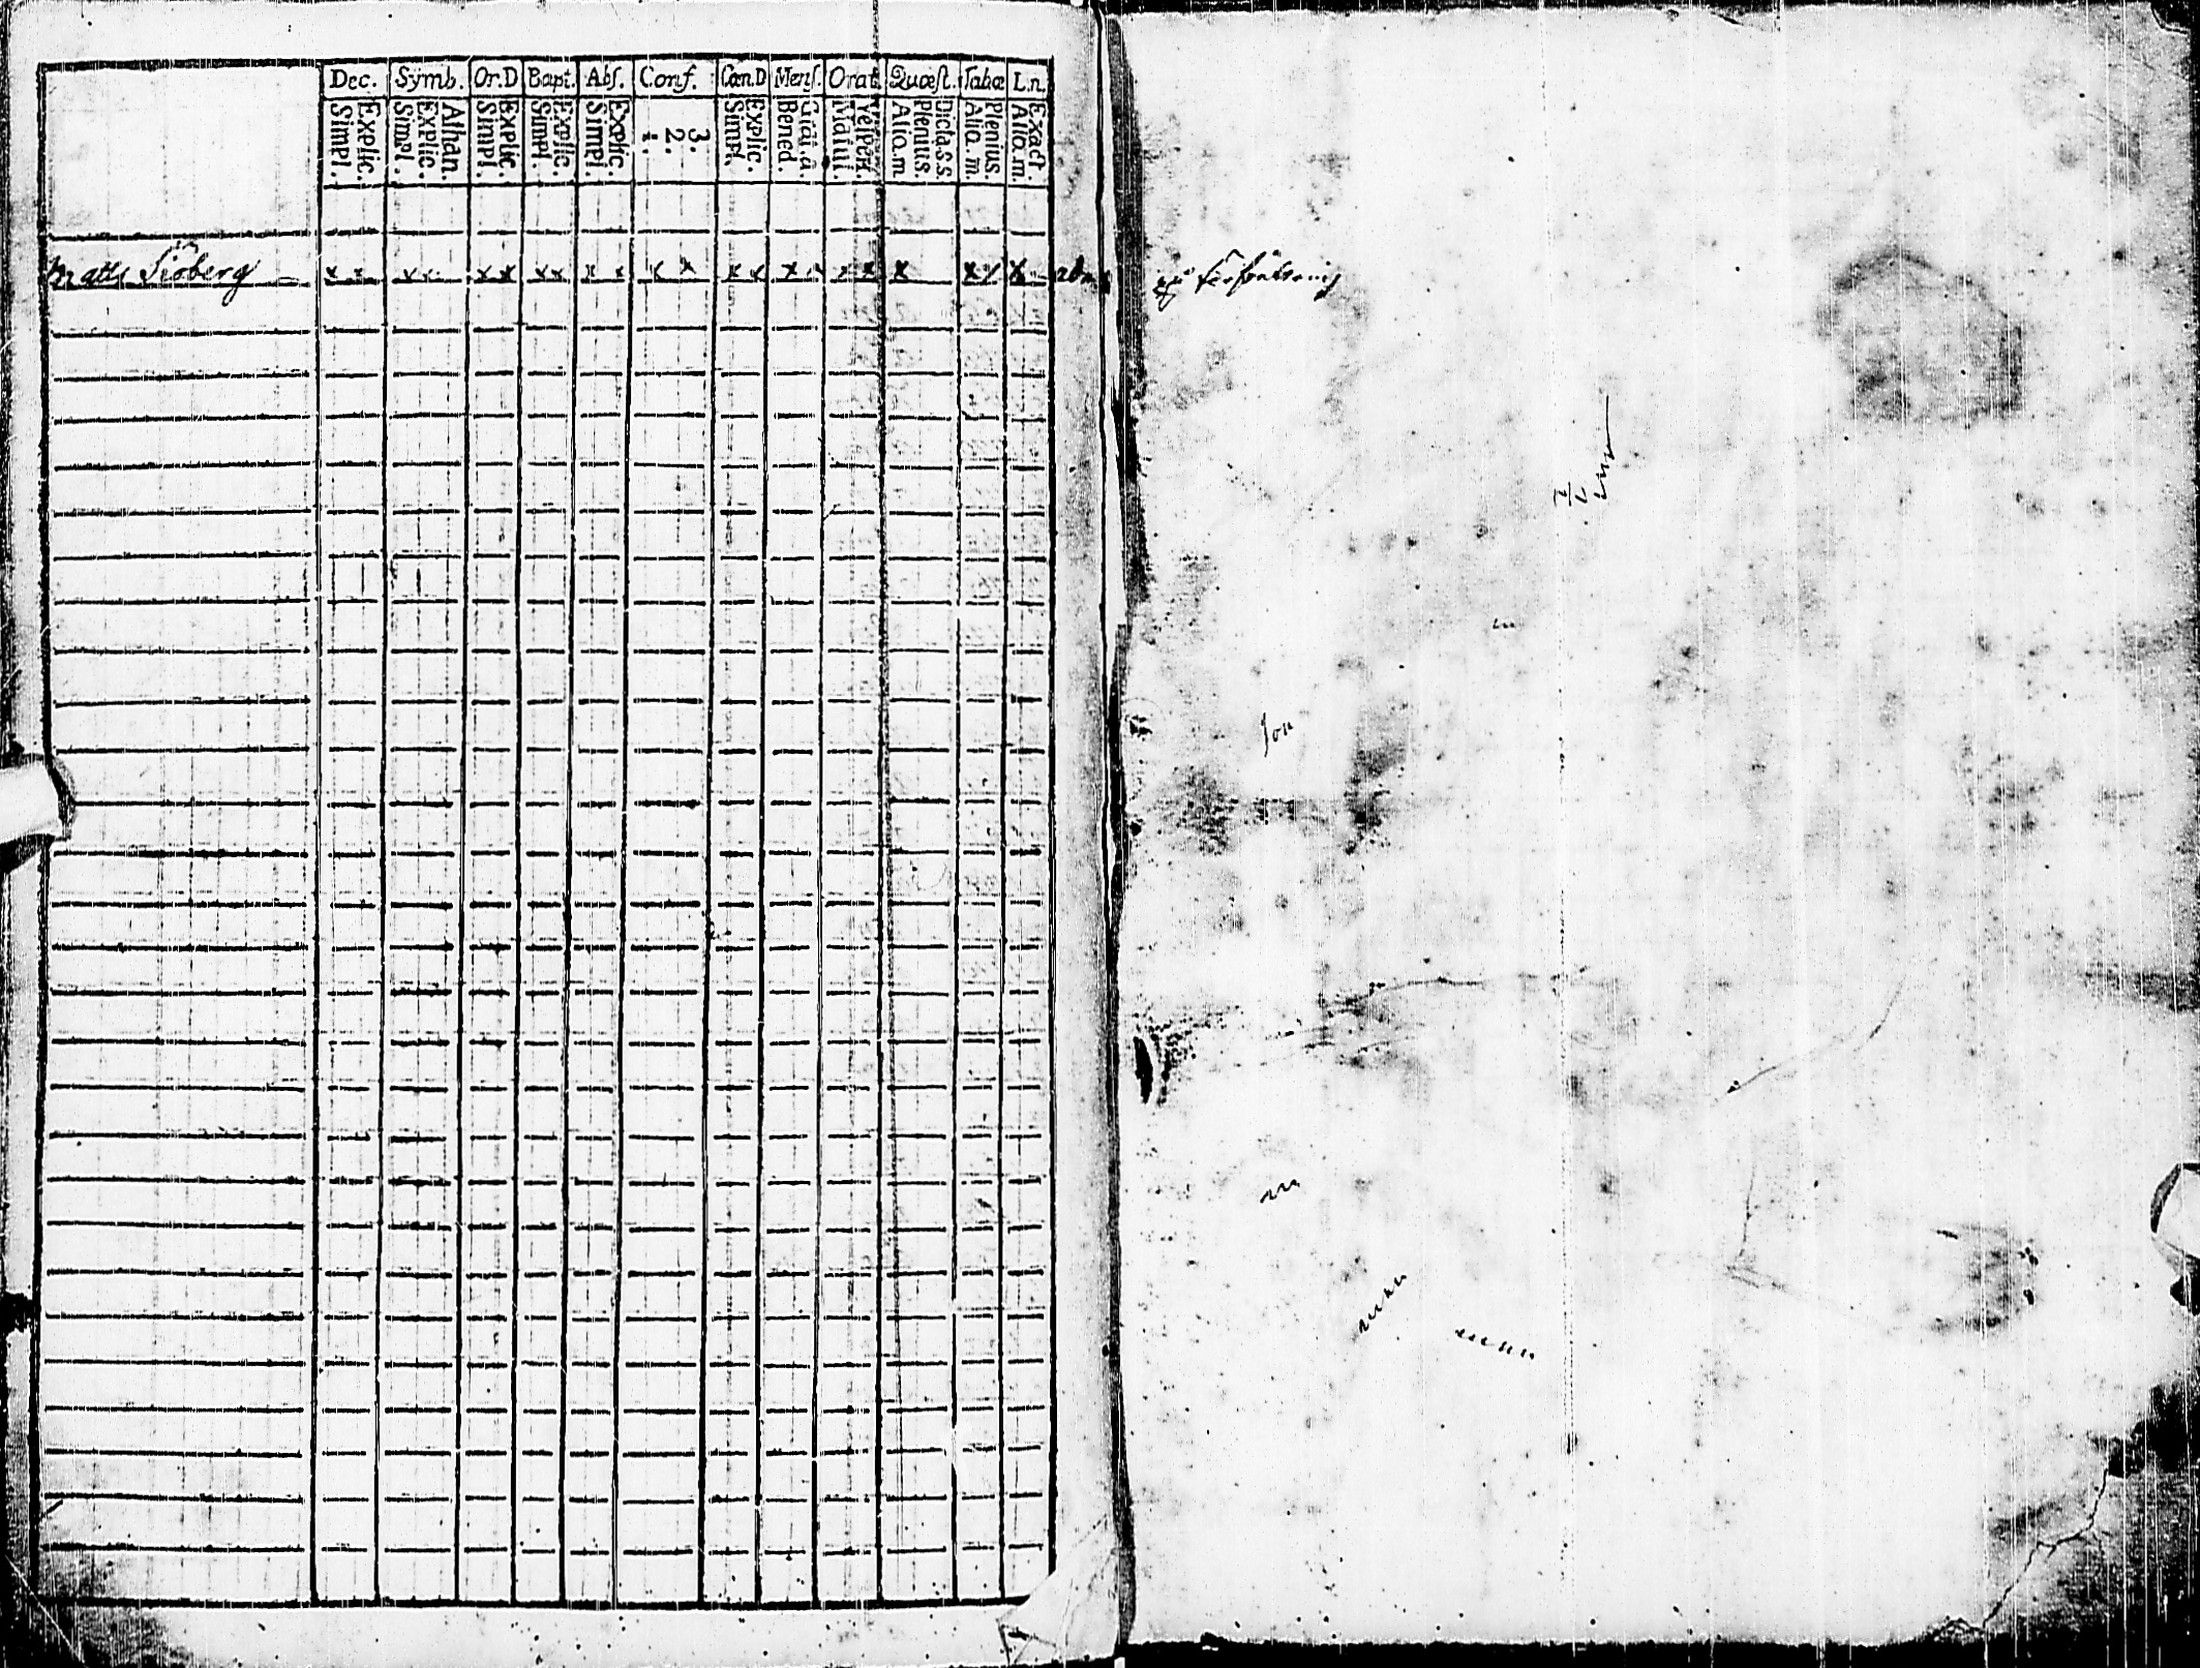 Dec. Sÿmb. Or.D Bapt. Abſ. Conf. Cœn.D Menſ. Orat. Quæſt. Tabæ L.n.
Explic. Simpl. Athan. Explic. Simpl. Explic. Simpl. Explic. Simpl. Explic. Simpl. 3. 2. 1. Explic. Simpl. Bened. Dicta.S.S. Plenius. Aliq.m Plenius. Aliq.m. Exact. Aliq.m.
Matts Siöberg x x x x x x x x x x x x x x x x x x x x x x
Jon